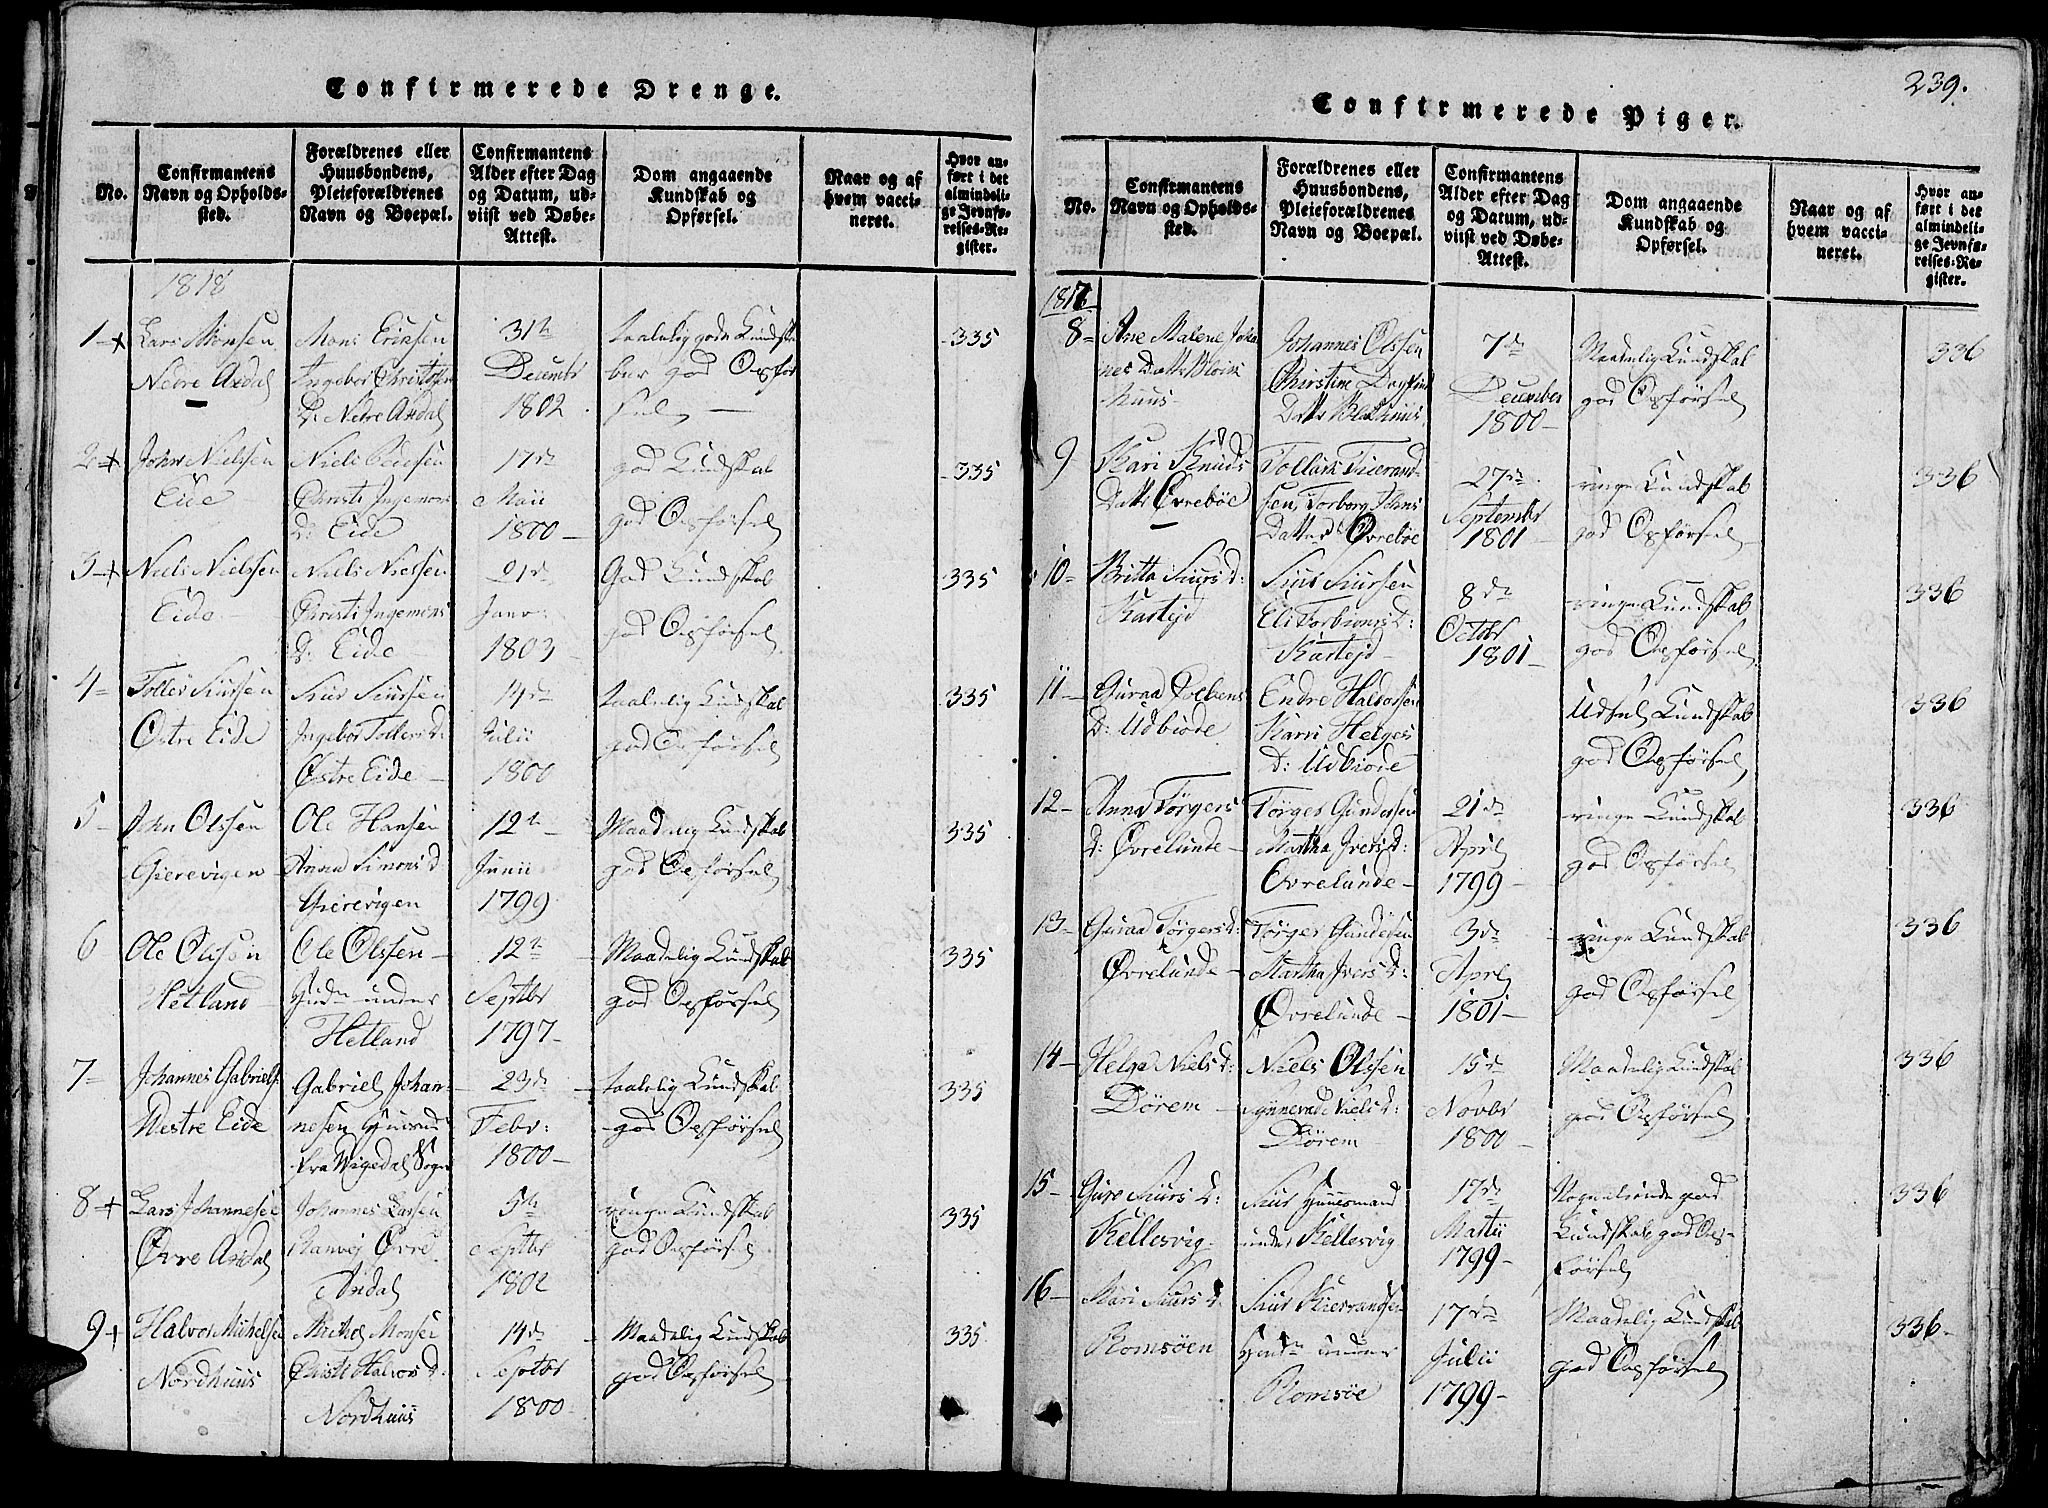 Confirmerede Drenge.
No.
Confirmantens
Navn og Opholds-
sted.
Forældrenes eller
Huusbondens,
Pleieforældrenes
Navn og Boepæl.
Confirmantens
Alder efter Dag
og Datum, ud-
viist ved Døbe-
Attest.
Dom angaaende
Kundskab og
Opførsel.
Naar og af
hvem vacci-
neret.
Hvor an-
ført i det
almindeli-
ge Jevnfø-
relses-Re-
gister.
1818
1
Lars Monsen
Nedre Axdal
Mons Ericsen
Ingebor Christofer
D: Nedre Axdal
31te
December
1802
taalelig gode Kundska-
ber god Opfør
sel
335
2
John Nielsen
Eide
Niels Pedersen
Christi Ingemons
D: Eide
17de
Maii
1800
god Kundskab
god Opførsel
335
3
Niels Nielsen
Eide
Niels Nielsen
Christi Ingemons
D: Eide
21de
Janr:
1803
God Kundskab
god Opførsel
335
4
Tollev Siursen
Østre Eide
Siur Siursen
Ingebor Tollevs D:
Østre Eide
14de
Julii
1800
taalelig Kundskab
god Opførsel
335
5
John Olsen
Gierevigen
Ole Hansen
Anna Simons D
Gierevigen
12te
Junii
1799
Maadelig Kundskab
god Opførsel
335
6
Ole Olsen
Hetland
Ole Olsen
under
Hetland
12te
Septbr
1797
Maadelig Kundskab
god Opførsel
335
7
Johannes Gabriels
Vestre Eide
Gabriel Johan-
nesen Huusmd
fra Vigedal Sogn
23de
Febr:
1800
taalelig Kundskab
god Opførsel
335
8
Lars Johannesen
Øvre Axdal
Johannes Larsen
Ranvei Øvre
Axdal
5te
Septbr
1802
ringe Kundskab
god Opførsel
335
9
Halvor Michelsen
Nordhuus
Michel Monsen
Christi Halvors D:
Nordhuus
14de
Septbr
1800
Maadelig Kundskab
god Opførsel
335
239.
Confirmerede Piger.
No.
Confirmantens
Navn og Opholds-
sted.
Forældrenes eller
Huusbondens,
Pleieforældrenes
Navn og Boepæl.
Confirmantens
Alder efter Dag
og Datum, ud-
viist ved Døbe-
Attest.
Dom angaaende
Kundskab og
Opførsel.
Naar og af
hvem vacci-
neret.
Hvor an-
ført i det
almindeli-
ge Jevnfø-
relses-Re-
gister.
8
Ane Malene Joha
nes Datter
huus
Johannes Olsen
Christine
Datter
7de
December
1800
Maadelig Kundskab
god Opførsel
336
9
Kari Knuds
Datter Øvrebøe
Torborg Johns
Datter Øvrebøe
27de
September
1801
ringe Kundskab
god Opførsel
336
10
Britta Siurs D:
Kartejd
Siur Siursen
Eli Torbiøns D:
Kartejd
8de
Octobr
1801
ringe Kundskab
god Opførsel
336
11
Guraa
D: Udbiøde
Endre Haldorsen
Karri Helges
D: Udbiøde
Udsul Kundskab
god Opførsel
336
12
Anna Tørgers
D: Øvrelunde
Tørger Gundersen
Martha Ivers D:
Øvrelunde
21de
April
1799
ringe Kundskab
god Opførsel
336
13
Guraa Tørgers D:
Øvrelunde
Tørger Gundersen
Martha Ivers D:
Øvrelunde
3de
April
1801
ringe Kundskab
god Opførsel
336
14
Helge Niels D:
Dørem
Niels Olsen
Niels D:
Dørem
15de
Novbr
1800
Maadelig Kundskab
god Opførsel
336
15
Gure Siurs D:
Kellesvig
Siur Huusmand
under Kellesvig
17de
Martii
1799
Nogenlunde god
Kundskab god Op-
førsel
336
16
Mari Siurs D.
Romsøen
Siur
under
Romsøe
17de
Julii
1799
Maadelig Kundskab
god Opførsel
336